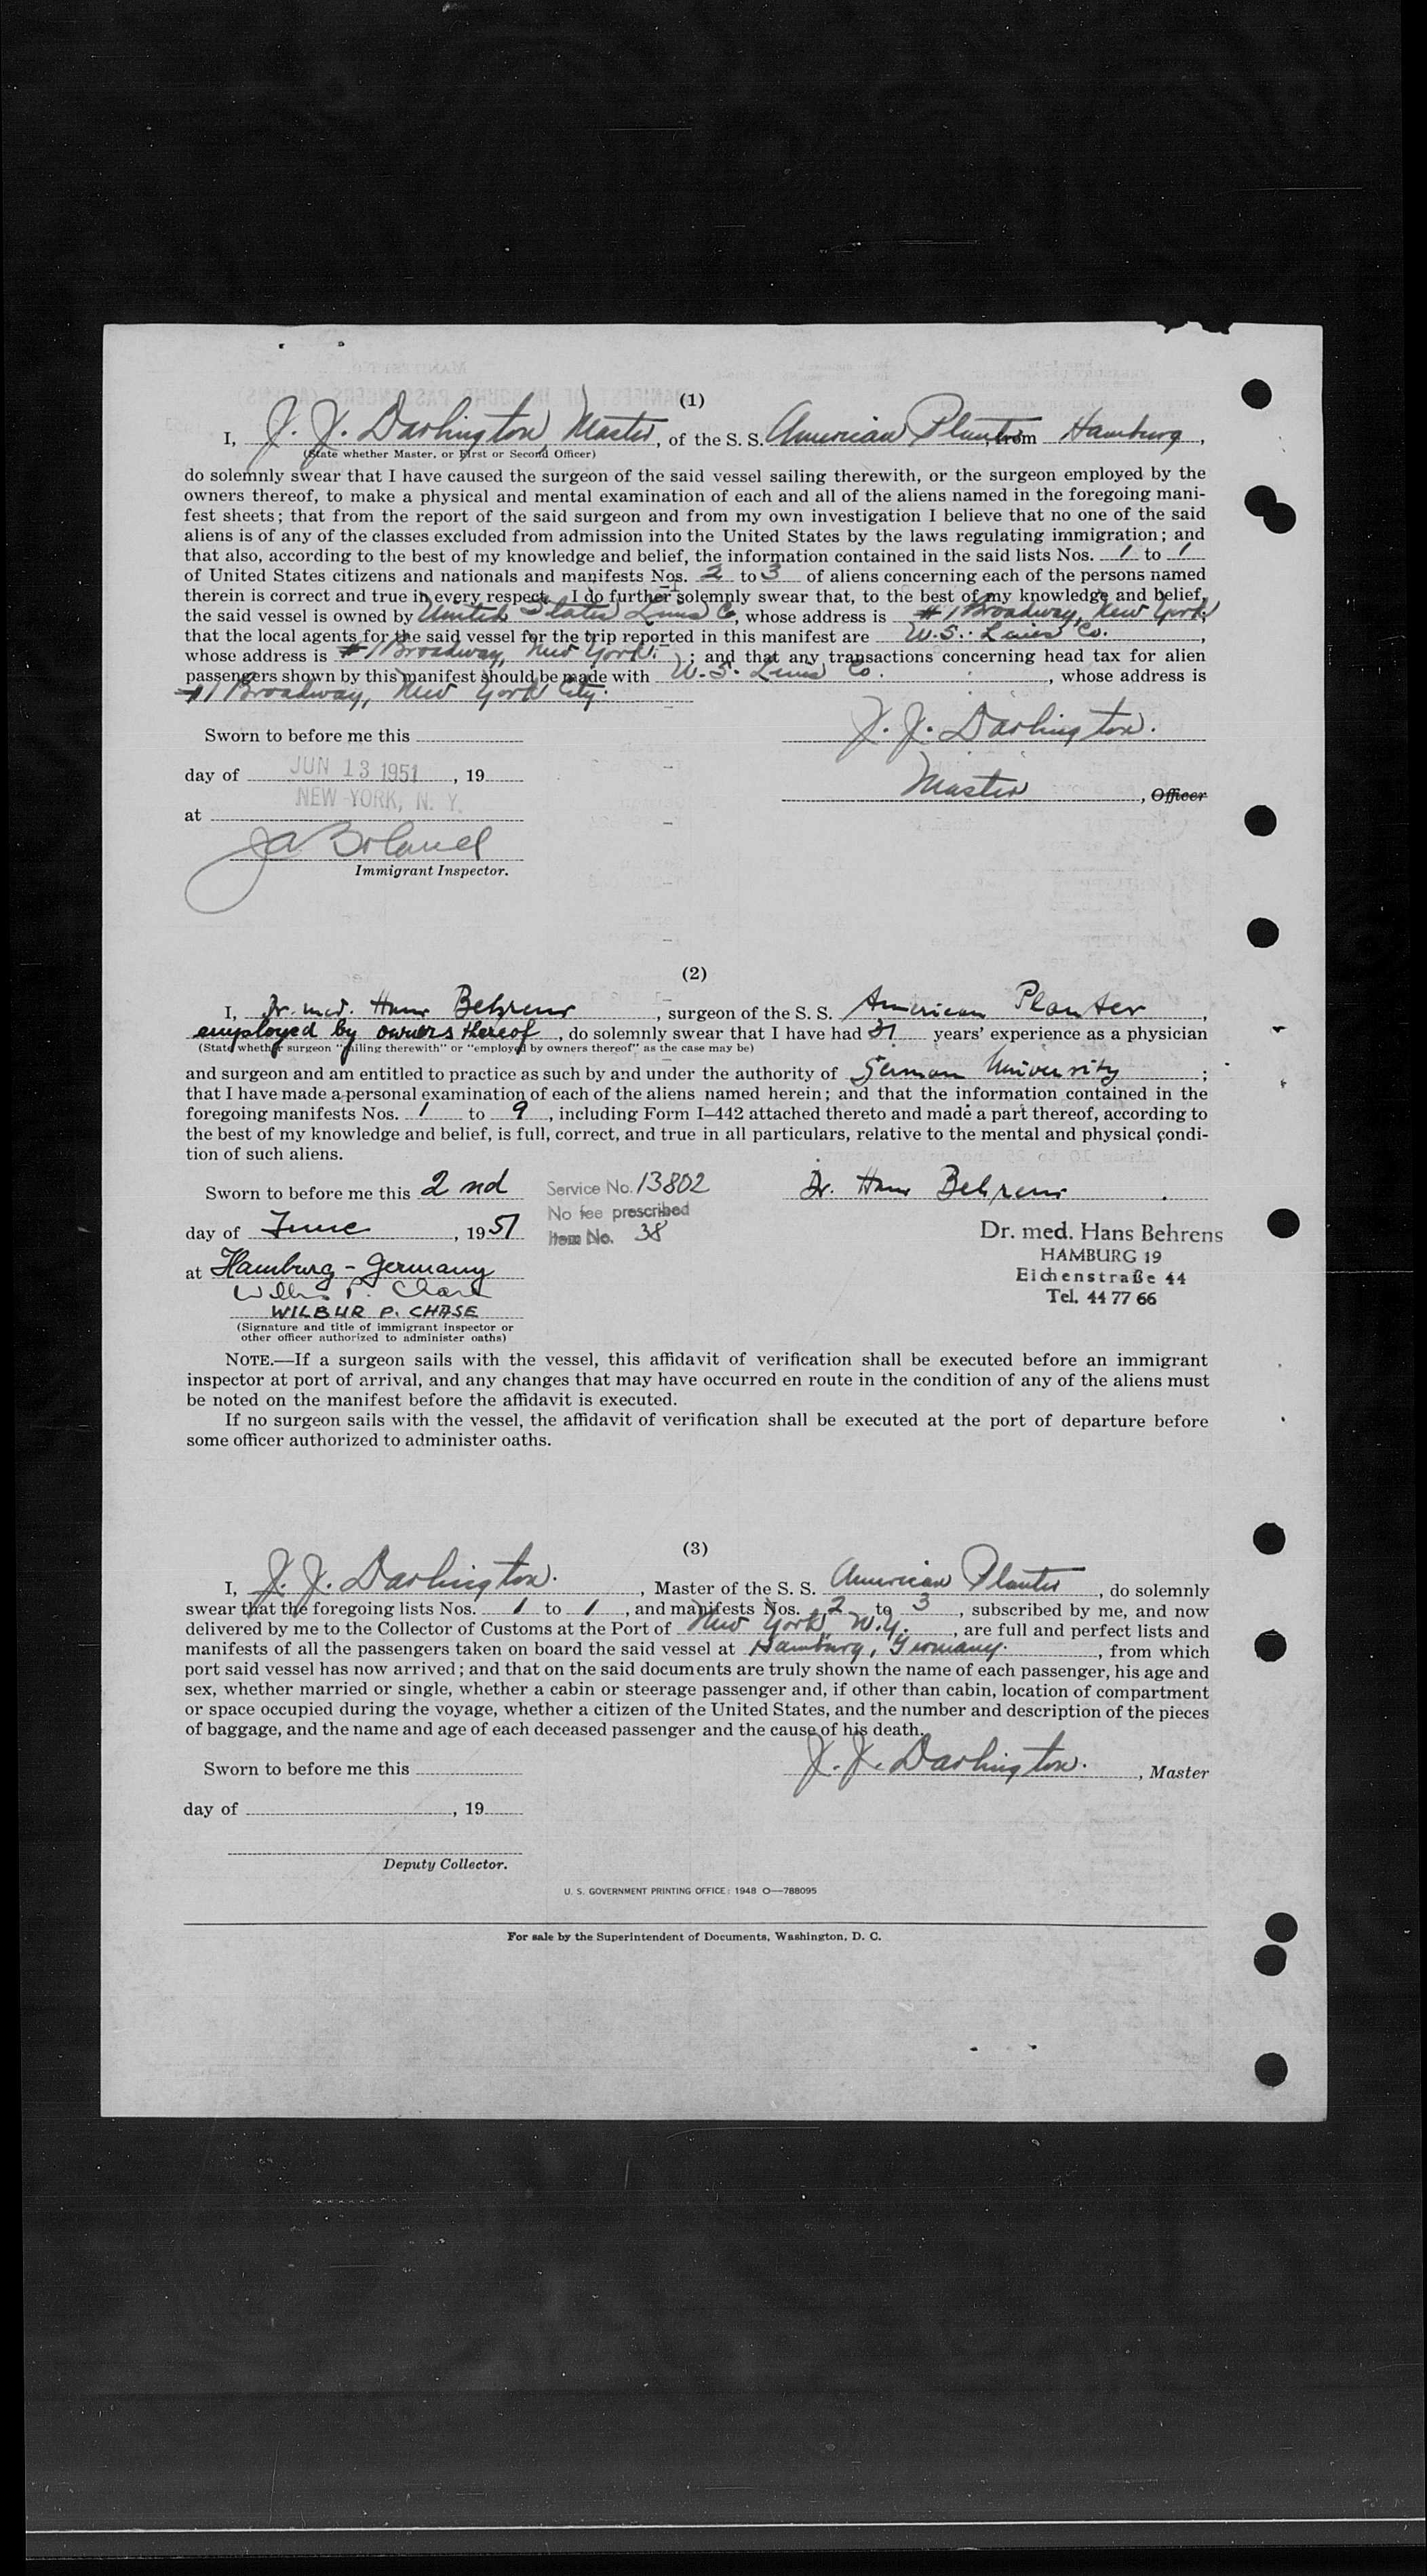 (1)
I, J. J. Darlington, Master, of the S. S. American Planter from Hamburg,
(State whether Master, or First or Second Officer)
do solemnly swear that I have caused the surgeon of the said vessel sailing therewith, or the surgeon employed by the
owners thereof, to make a physical and mental examination of each and all of the aliens named in the foregoing mani-
fest sheets; that from the report of the said surgeon and from my own investigation I believe that no one of the said
aliens is of any of the classes excluded from admission into the United States by the laws regulating immigration; and
that also, according to the best of my knowledge and belief, the information contained in the said lists Nos. 1 to 1
of United States citizens and nationals and manifests Nos. 2 to 3 of aliens concerning each of the persons named
therein is correct and true in every respect. I do further solemnly swear that, to the best of my knowledge and belief,
the said vessel is owned by United States Lines Co, whose address is #1 Broadway, New York,
that the local agents for the said vessel for the trip reported in this manifest are U.S. Lines Co.,
whose address is #1 Broadway, New York.; and that any transactions concerning head tax for alien
passengers shown by this manifest should be made with U.S. Lines Co., whose address is
#1 Broadway, New York City.
Sworn to before me this
J. J. Darlington.
day of JUN 13 1951, 19
Master, Officer
at NEW YORK, N. Y.
J A Boland
Immigrant Inspector.
(2)
I, Dr. med. Hans Behrens, surgeon of the S. S. American Planter,
employed by owners thereof, do solemnly swear that I have had 31 years' experience as a physician
(State whether surgeon "sailing therewith" or "employed by owners thereof" as the case may be)
and surgeon and am entitled to practice as such by and under the authority of German University;
that I have made a personal examination of each of the aliens named herein; and that the information contained in the
foregoing manifests Nos. 1 to 9, including Form I–442 attached thereto and made a part thereof, according to
the best of my knowledge and belief, is full, correct, and true in all particulars, relative to the mental and physical condi-
tion of such aliens.
Sworn to before me this 2nd
Service No. 13802
Dr. Hans Behrens.
No fee prescribed
day of June, 1951
Item No. 38
Dr. med. Hans Behrens
HAMBURG 19
Eichenstraße 44
Tel. 44 77 66
at Hamburg - Germany
Wilbur P. Chase
WILBUR P. CHASE
(Signature and title of immigrant inspector or
other officer authorized to administer oaths)
NOTE.—If a surgeon sails with the vessel, this affidavit of verification shall be executed before an immigrant
inspector at port of arrival, and any changes that may have occurred en route in the condition of any of the aliens must
be noted on the manifest before the affidavit is executed.
If no surgeon sails with the vessel, the affidavit of verification shall be executed at the port of departure before
some officer authorized to administer oaths.
(3)
I, J. J. Darlington., Master of the S. S. American Planter, do solemnly
swear that the foregoing lists Nos. 1 to 1, and manifests Nos. 2 to 3, subscribed by me, and now
delivered by me to the Collector of Customs at the Port of New York, N.Y., are full and perfect lists and
manifests of all the passengers taken on board the said vessel at Hamburg, Germany., from which
port said vessel has now arrived; and that on the said documents are truly shown the name of each passenger, his age and
sex, whether married or single, whether a cabin or steerage passenger and, if other than cabin, location of compartment
or space occupied during the voyage, whether a citizen of the United States, and the number and description of the pieces
of baggage, and the name and age of each deceased passenger and the cause of his death.
Sworn to before me this
J. J. Darlington., Master
day of , 19
Deputy Collector.
U. S. GOVERNMENT PRINTING OFFICE: 1948 O—788095
For sale by the Superintendent of Documents, Washington, D. C.